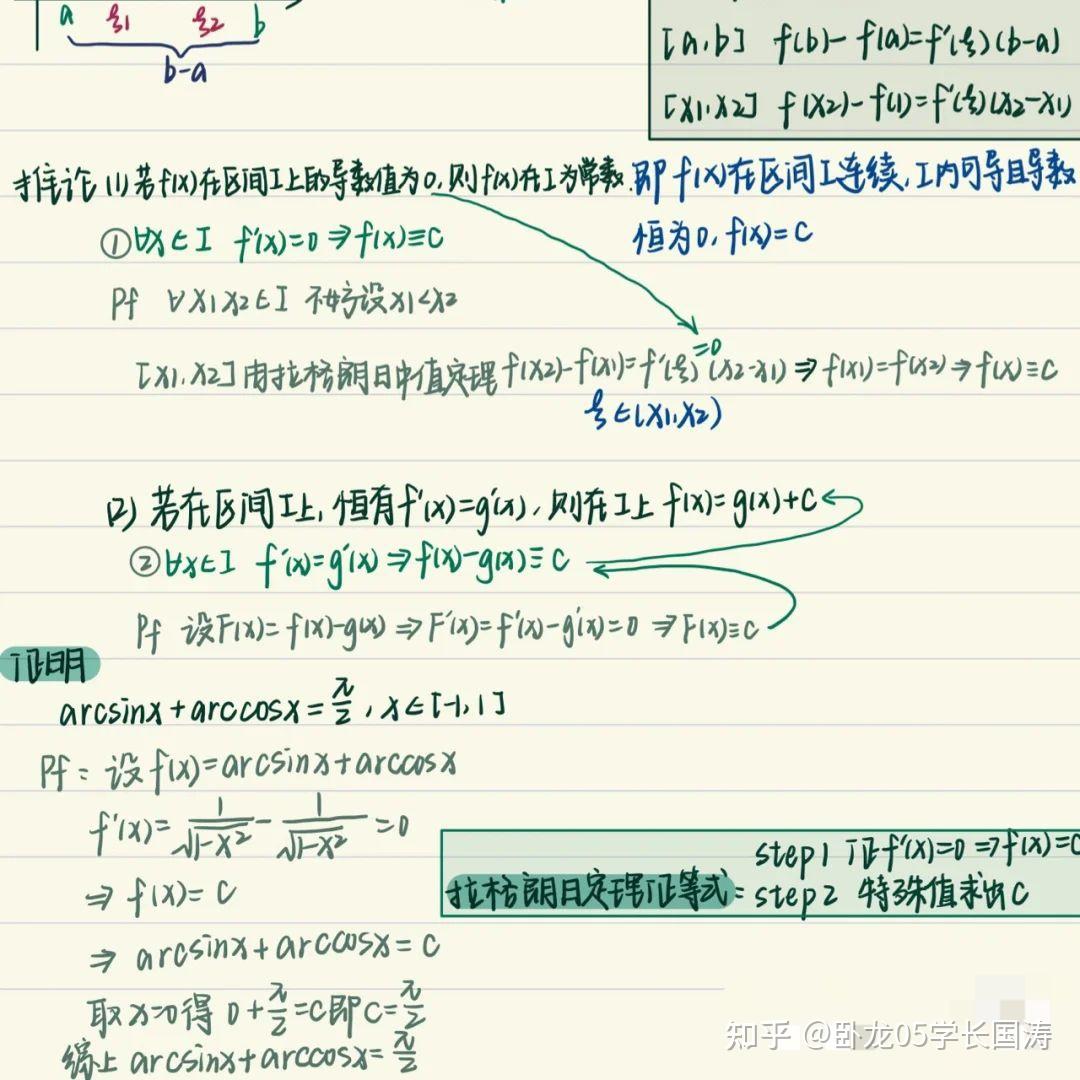 a ξ1 ξ2 b
b-a
[a,b] f(b)-f(a)=f'(ξ)(b-a)
[x1,x2] f(x2)-f(1)=f'(ξ)(x2-x1)
推论(1)若f(x)在区间I上的导数值为0,则f(x)在I为常数. 即f(x)在区间I连续,I内可导且导数
恒为0,f(x)=C
①∀x∈I f'(x)=0⇒f(x)≡C
Pf ∀x1x2∈I 不妨设x1<x2
=0
[x1,x2]由拉格朗日中值定理f(x2)-f(x1)=f'(ξ)(x2-x1)⇒f(x1)=f(x2)⇒f(x)≡C
ξ∈(x1,x2)
(2)若在区间I上,恒有f'(x)=g'(x),则在I上f(x)=g(x)+C
②∀x∈I f'(x)=g'(x)⇒f(x)-g(x)≡C
Pf 设F(x)=f(x)-g(x)⇒F'(x)=f'(x)-g'(x)=0⇒F(x)≡C
证明
arcsinx+arccosx=π/2,x∈[-1,1]
Pf:设f(x)=arcsinx+arccosx
f'(x)=1/√1-x²-1/√1-x²=0
⇒f(x)=C
⇒arcsinx+arccosx=C
取x=0得0+π/2=C即C=π/2
综上arcsinx+arccosx=π/2
step1 证f'(x)=0⇒f(x)=C
拉格朗日定理证等式: step2 特殊值求出C
知乎 @卧龙05学长国涛